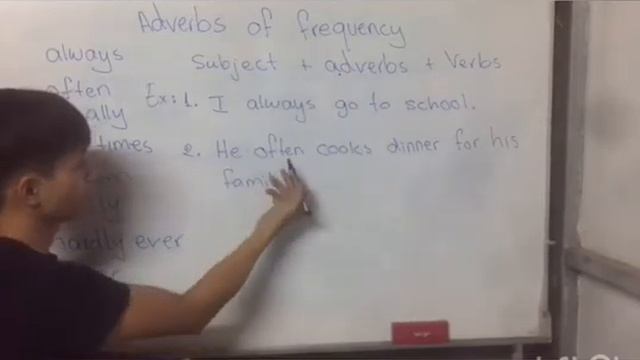 Adverbs of frequency
always
often
ally
times
ly
hardly ever
Subject + adverbs + Verbs
Ex: 1. I always go to school.
2. He often cooks dinner for his
fami